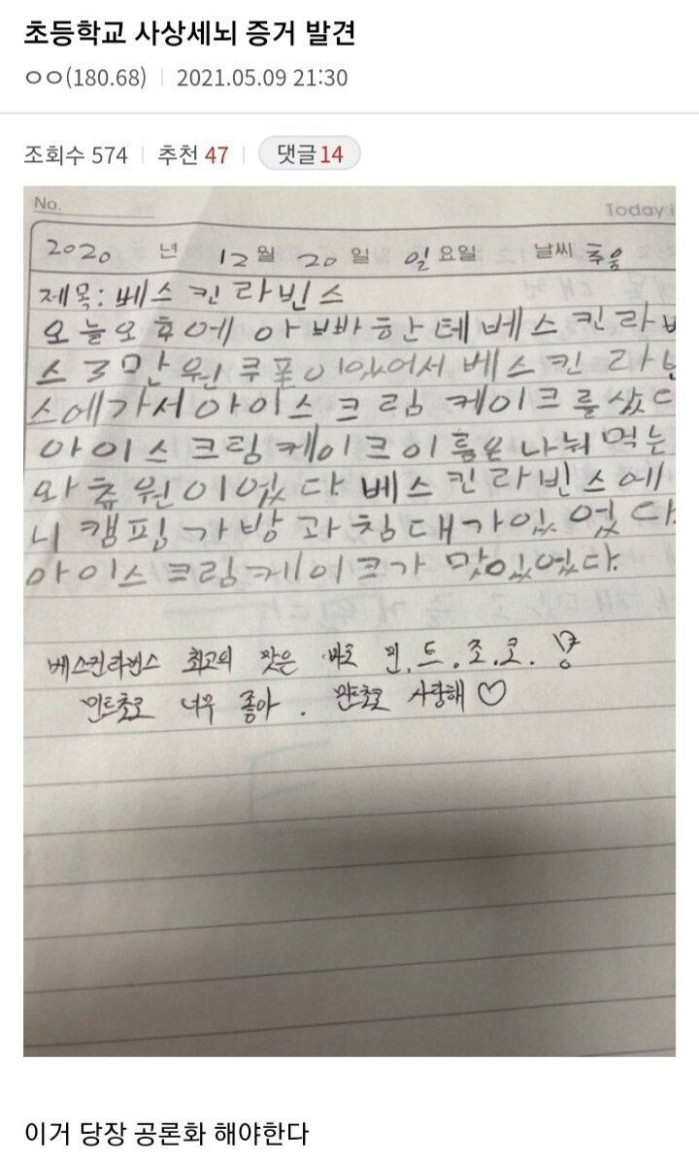 초등학교 사상세뇌 증거 발견
ㅇㅇ(180.68) 2021.05.09 21:30
조회수 574 추천 47 댓글 14
No. Today
2020 년 12월 20일 일요일 날씨 추움
제목: 베스킨라빈스
오늘오후에 아빠한테 베스킨라
스3만원쿠폰이있어서 베스킨라
스에가서아이스크림 케이크를샀
아이스크림케이크이름은나눠먹는
와츄원이었다. 베스킨라빈스에
니캠핑가방과침대가있었다.
아이스크림케이크가 맛있었다.
베스킨라빈스 최고의 맛은 바로 민.트.초.코.
민트초코 너무 좋아. 민트초코 사랑해 ♡
이거 당장 공론화 해야한다